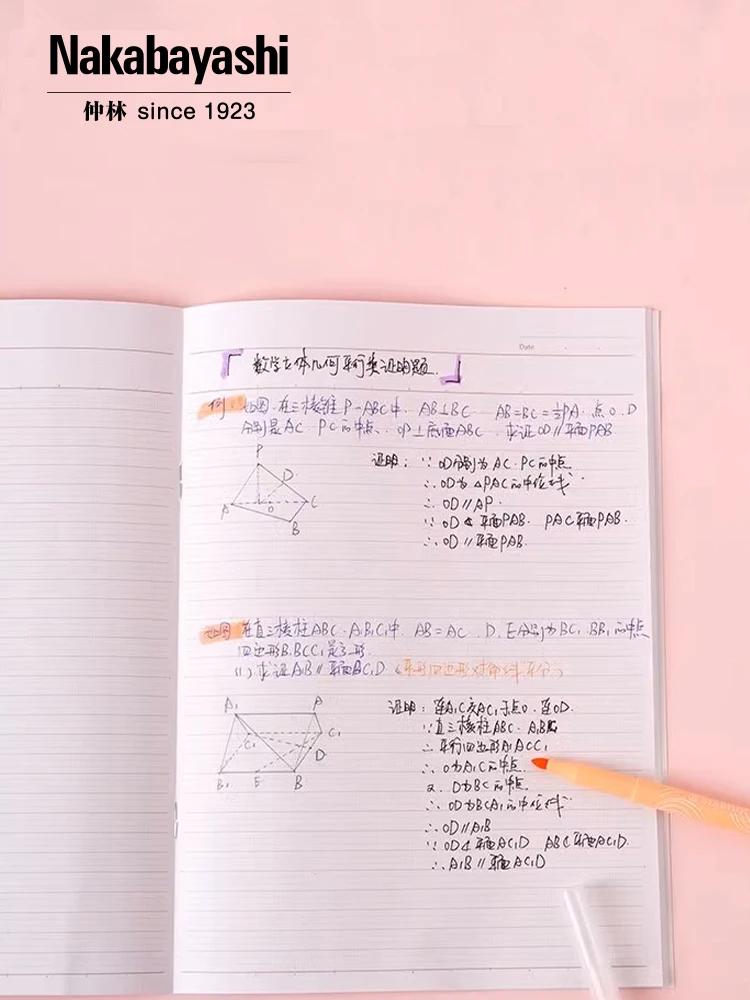 Nakabayashi
仲林 since 1923
Date
「数学立体几何平行类证明题」
例: 如图.在三棱锥P-ABC中. AB⊥BC AB=BC=½PA. 点O.D
分别是AC.PC的中点. OP⊥底面ABC 求证OD∥平面PAB
P
D
A O C
B
证明: ∵OD分别为AC.PC的中点
∴OD为△PAC的中位线
∴OD∥AP.
∵OD⊄平面PAB. PA⊂平面PAB.
∴OD∥平面PAB.
如图 在直三棱柱ABC-A₁B₁C₁中. AB=AC D.E分别为BC. BB₁的中点
四边形B₁BCC₁是 形.
(1)求证A₁B∥平面AC₁D (平行四边形对角线平分)
A₁ A
C₁ C₁
D
B₁ E B
证明: 连A₁C交AC₁于点O.连OD.
∵直三棱柱ABC-A₁B₁C₁
∴平行四边形A₁ACC₁
∴O为A₁C的中点
又D为BC的中点.
∴OD为BCA₁的中位线
∴OD∥A₁B
∵OD⊄平面AC₁D AB⊄平面AC₁D.
∴A₁B∥平面AC₁D